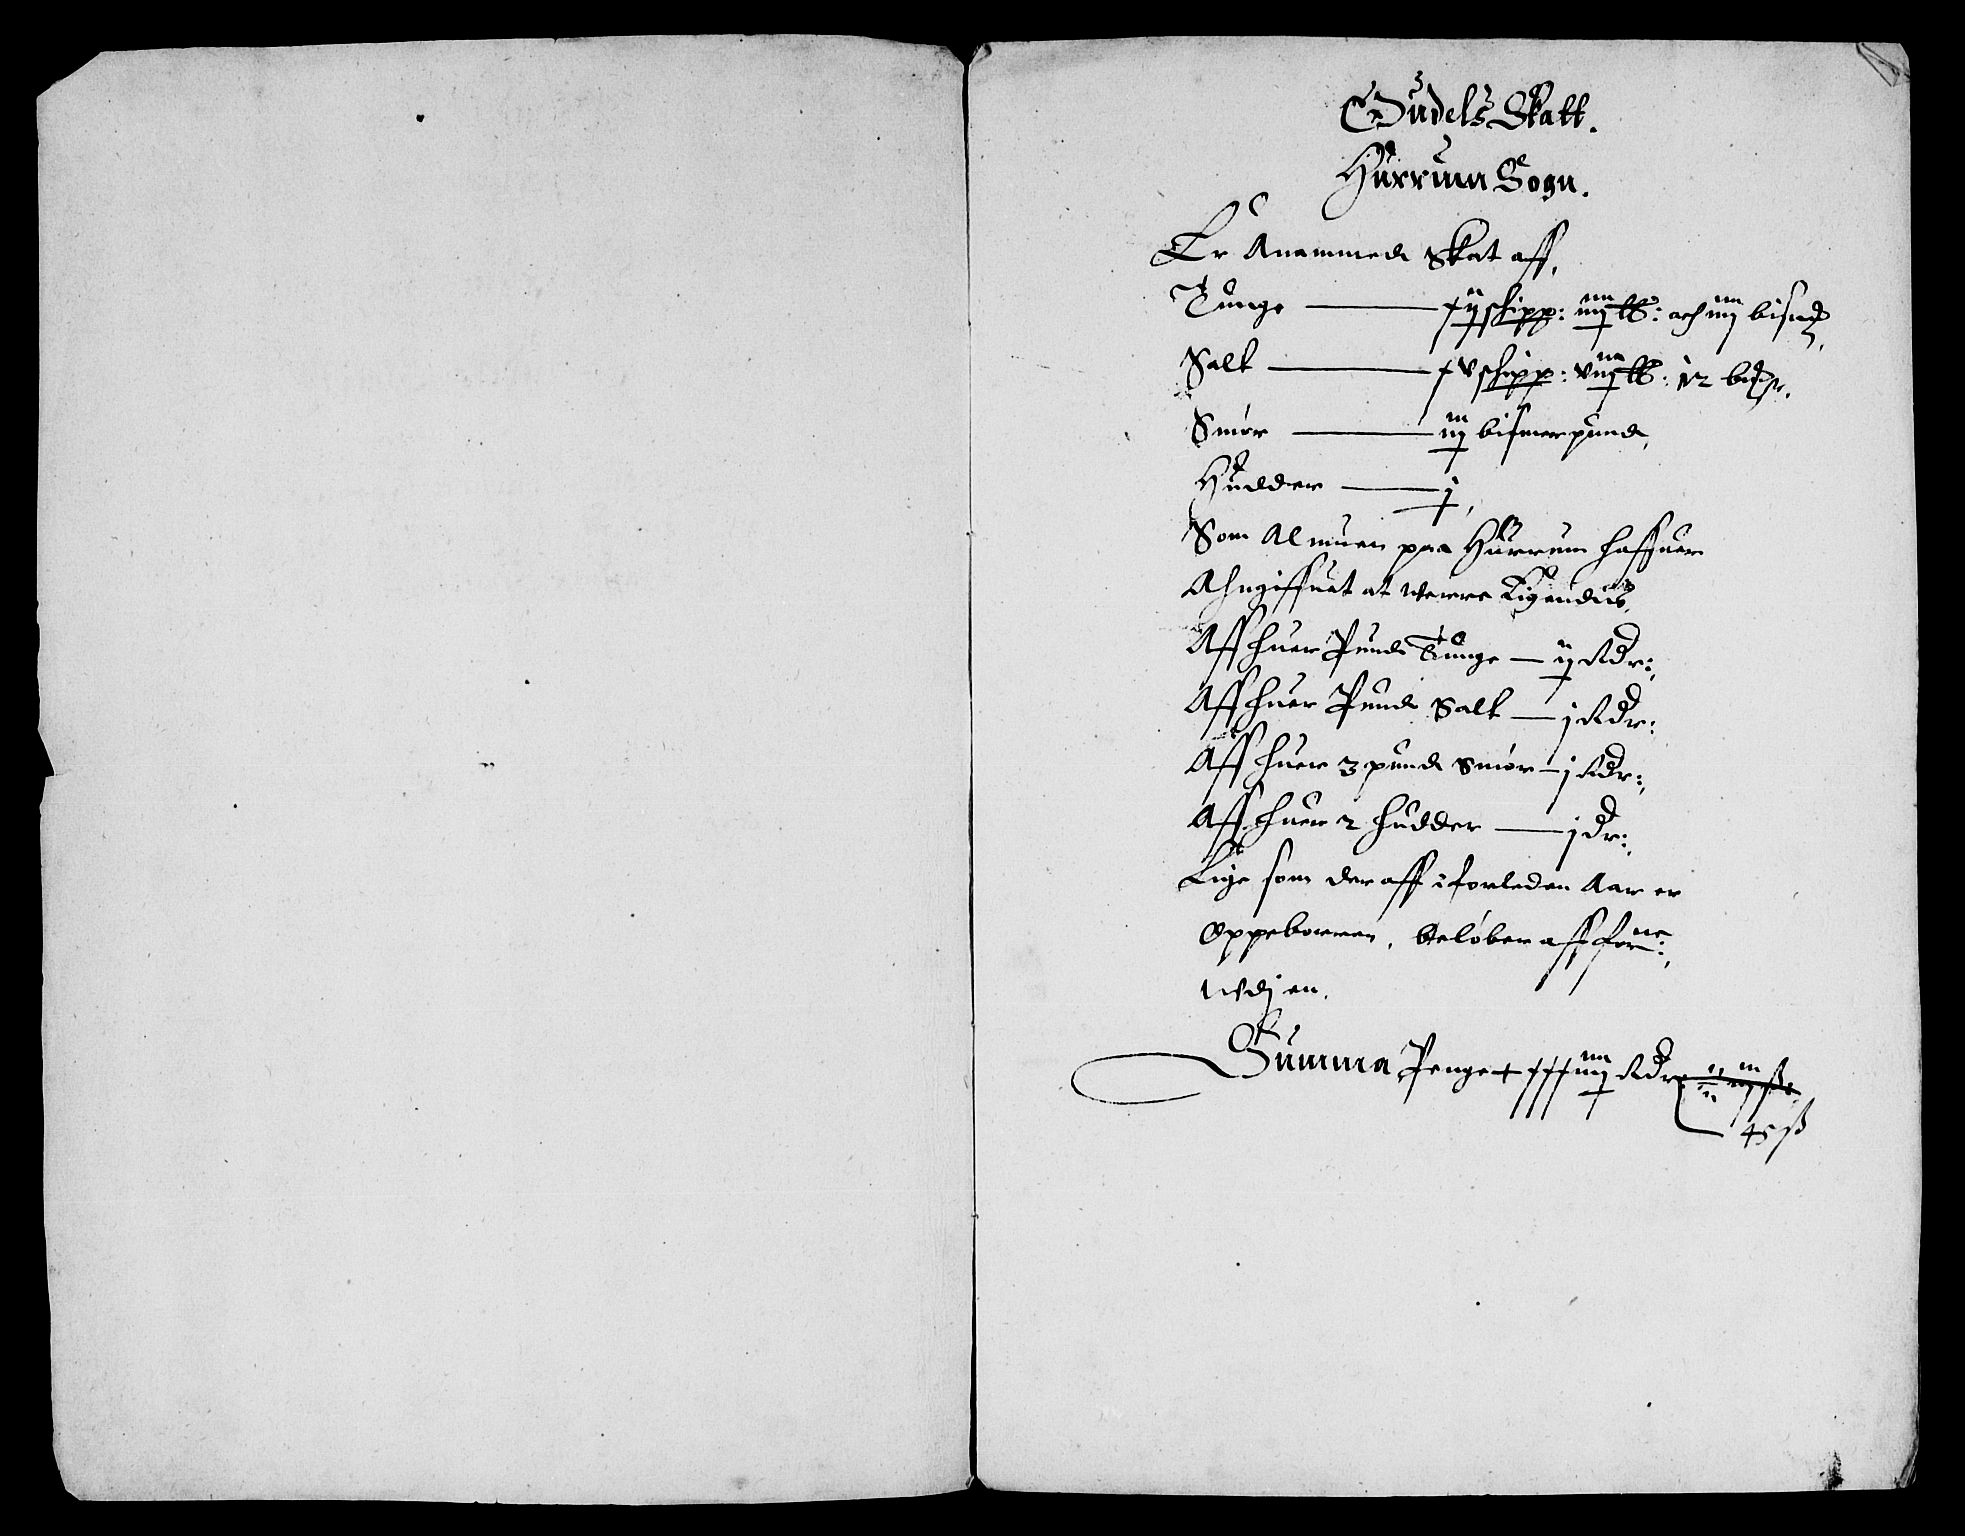 Oudels Skatt.
Hurrum Sogn.
Er Anammedt Skat aff,
Tunge — xij schipp: iiij ℔: och iiij bismḍ,
Salt — xv schipp: viij ℔: 12 bispd,
Smör — iij bismerpund,
Hudder — j,
Som Almuen paa Hurrum haffuer
Ahngiffuet at werre Eigendis,
Aff huer Pundt Tunge — ij Rdr:,
Aff huer Pundt Salt — j Rdr:
Aff huer 3 pundt Smör — j Rdr:,
Aff huer 2 hudder — j dr:,
Lige som der aff i forleden Aar er
Oppeborren, belöber aff forne:,
Wdj en.
Summa Penge + xxxiiij Rdr:
45 ß